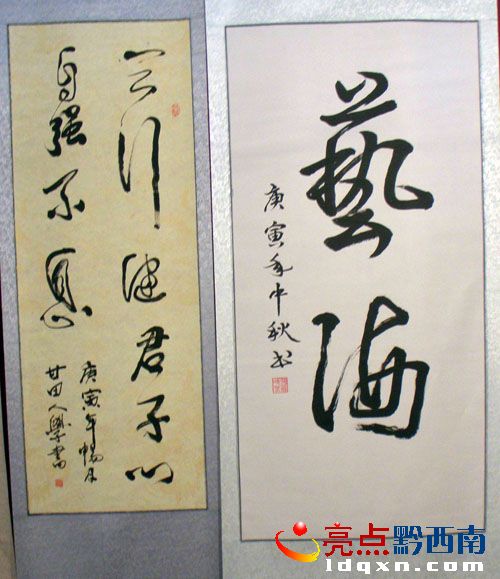 天行健君子以
自强不息
庚寅年暢月
田人學書
藝海
庚寅年中秋书
亮点黔西南
ldqxn.com